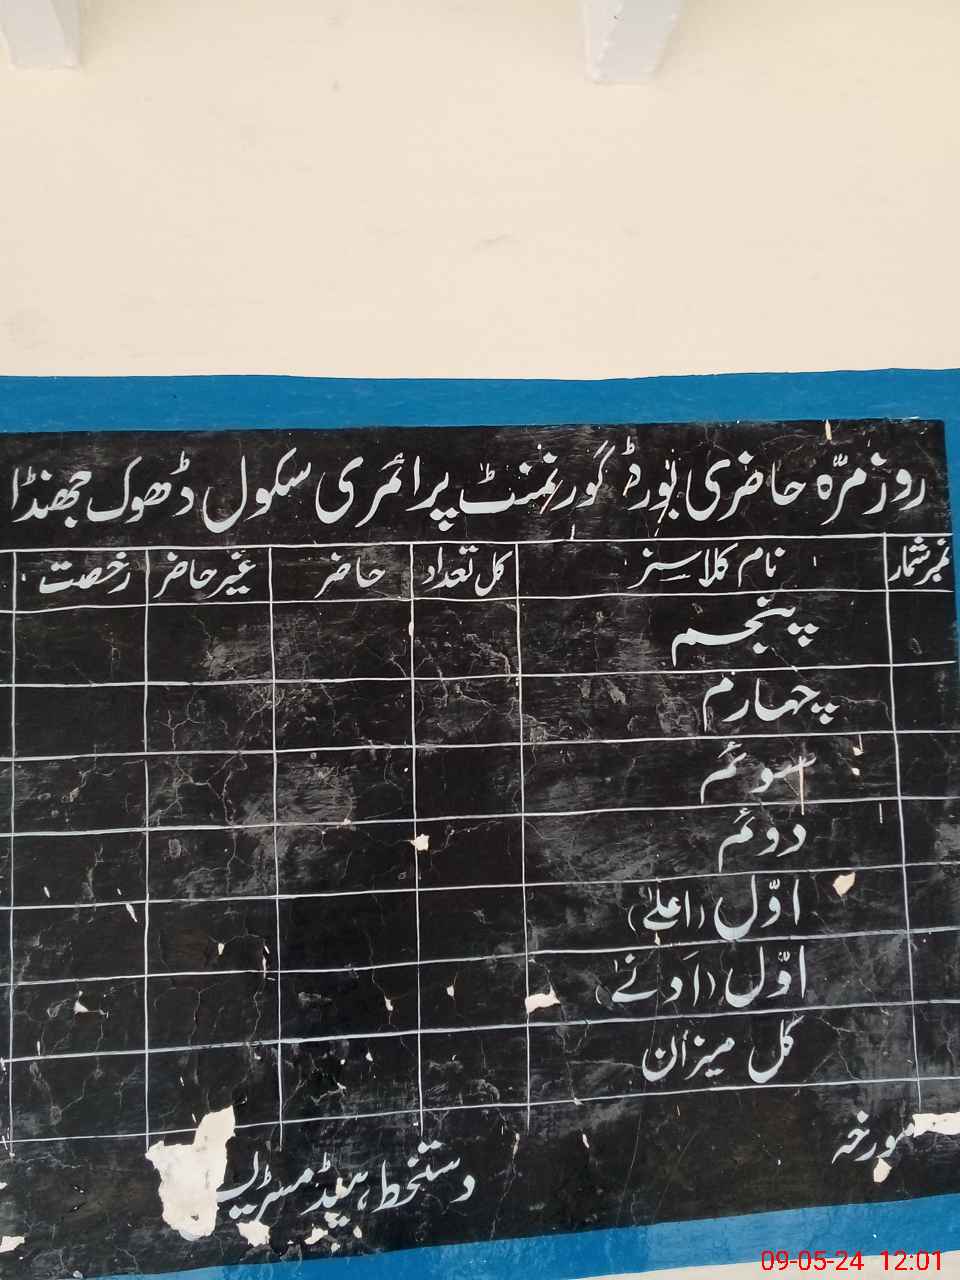 روزمرّہ حاضری بورڈ گورنمنٹ پرائمری سکول ڈھوک جھنڈا
نمبر شمار نام کلاسز کل تعداد حاضر غیر حاضر رخصت
پنجم
چہارم
سوئم
دوئم
اوّل (اعلیٰ)
اوّل (اَدنیٰ)
کل میزان
مورخہ
دستخط ہیڈ مسٹریس
09-05-24 12:01